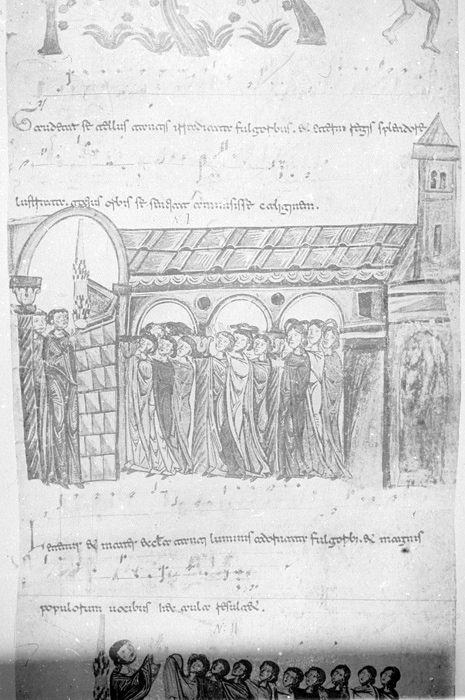 Gaudeat se tellus tantis irradiata fulgoribus. & eterni regis splendore
lustrata. totius orbis se sentiat amisisse caliginem.
N. I
Letetur & mater eccla tanti luminis adornata fulgorib. & magnis
populorum uocibus hec aula resultet.
N. II